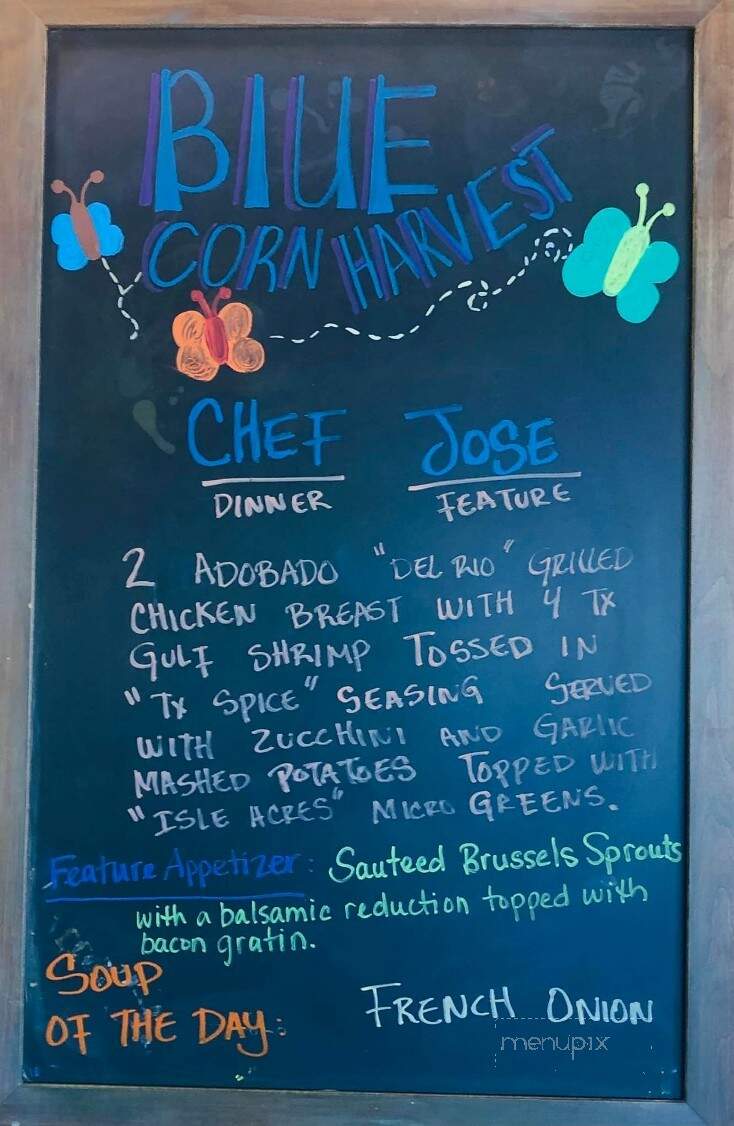 BLUE
CORN HARVEST
CHEF JOSE
DINNER FEATURE
2 ADOBADO "DEL RIO" GRILLED
CHICKEN BREAST WITH 4 TX
GULF SHRIMP TOSSED IN
"TX SPICE" SEASING SERVED
WITH ZUCCHINI AND GARLIC
MASHED POTATOES TOPPED WITH
"ISLE ACRES" MICRO GREENS.
Feature Appetizer: Sauteed Brussels Sprouts
with a balsamic reduction topped with
bacon gratin.
SOUP
OF THE DAY: FRENCH ONION
menupix